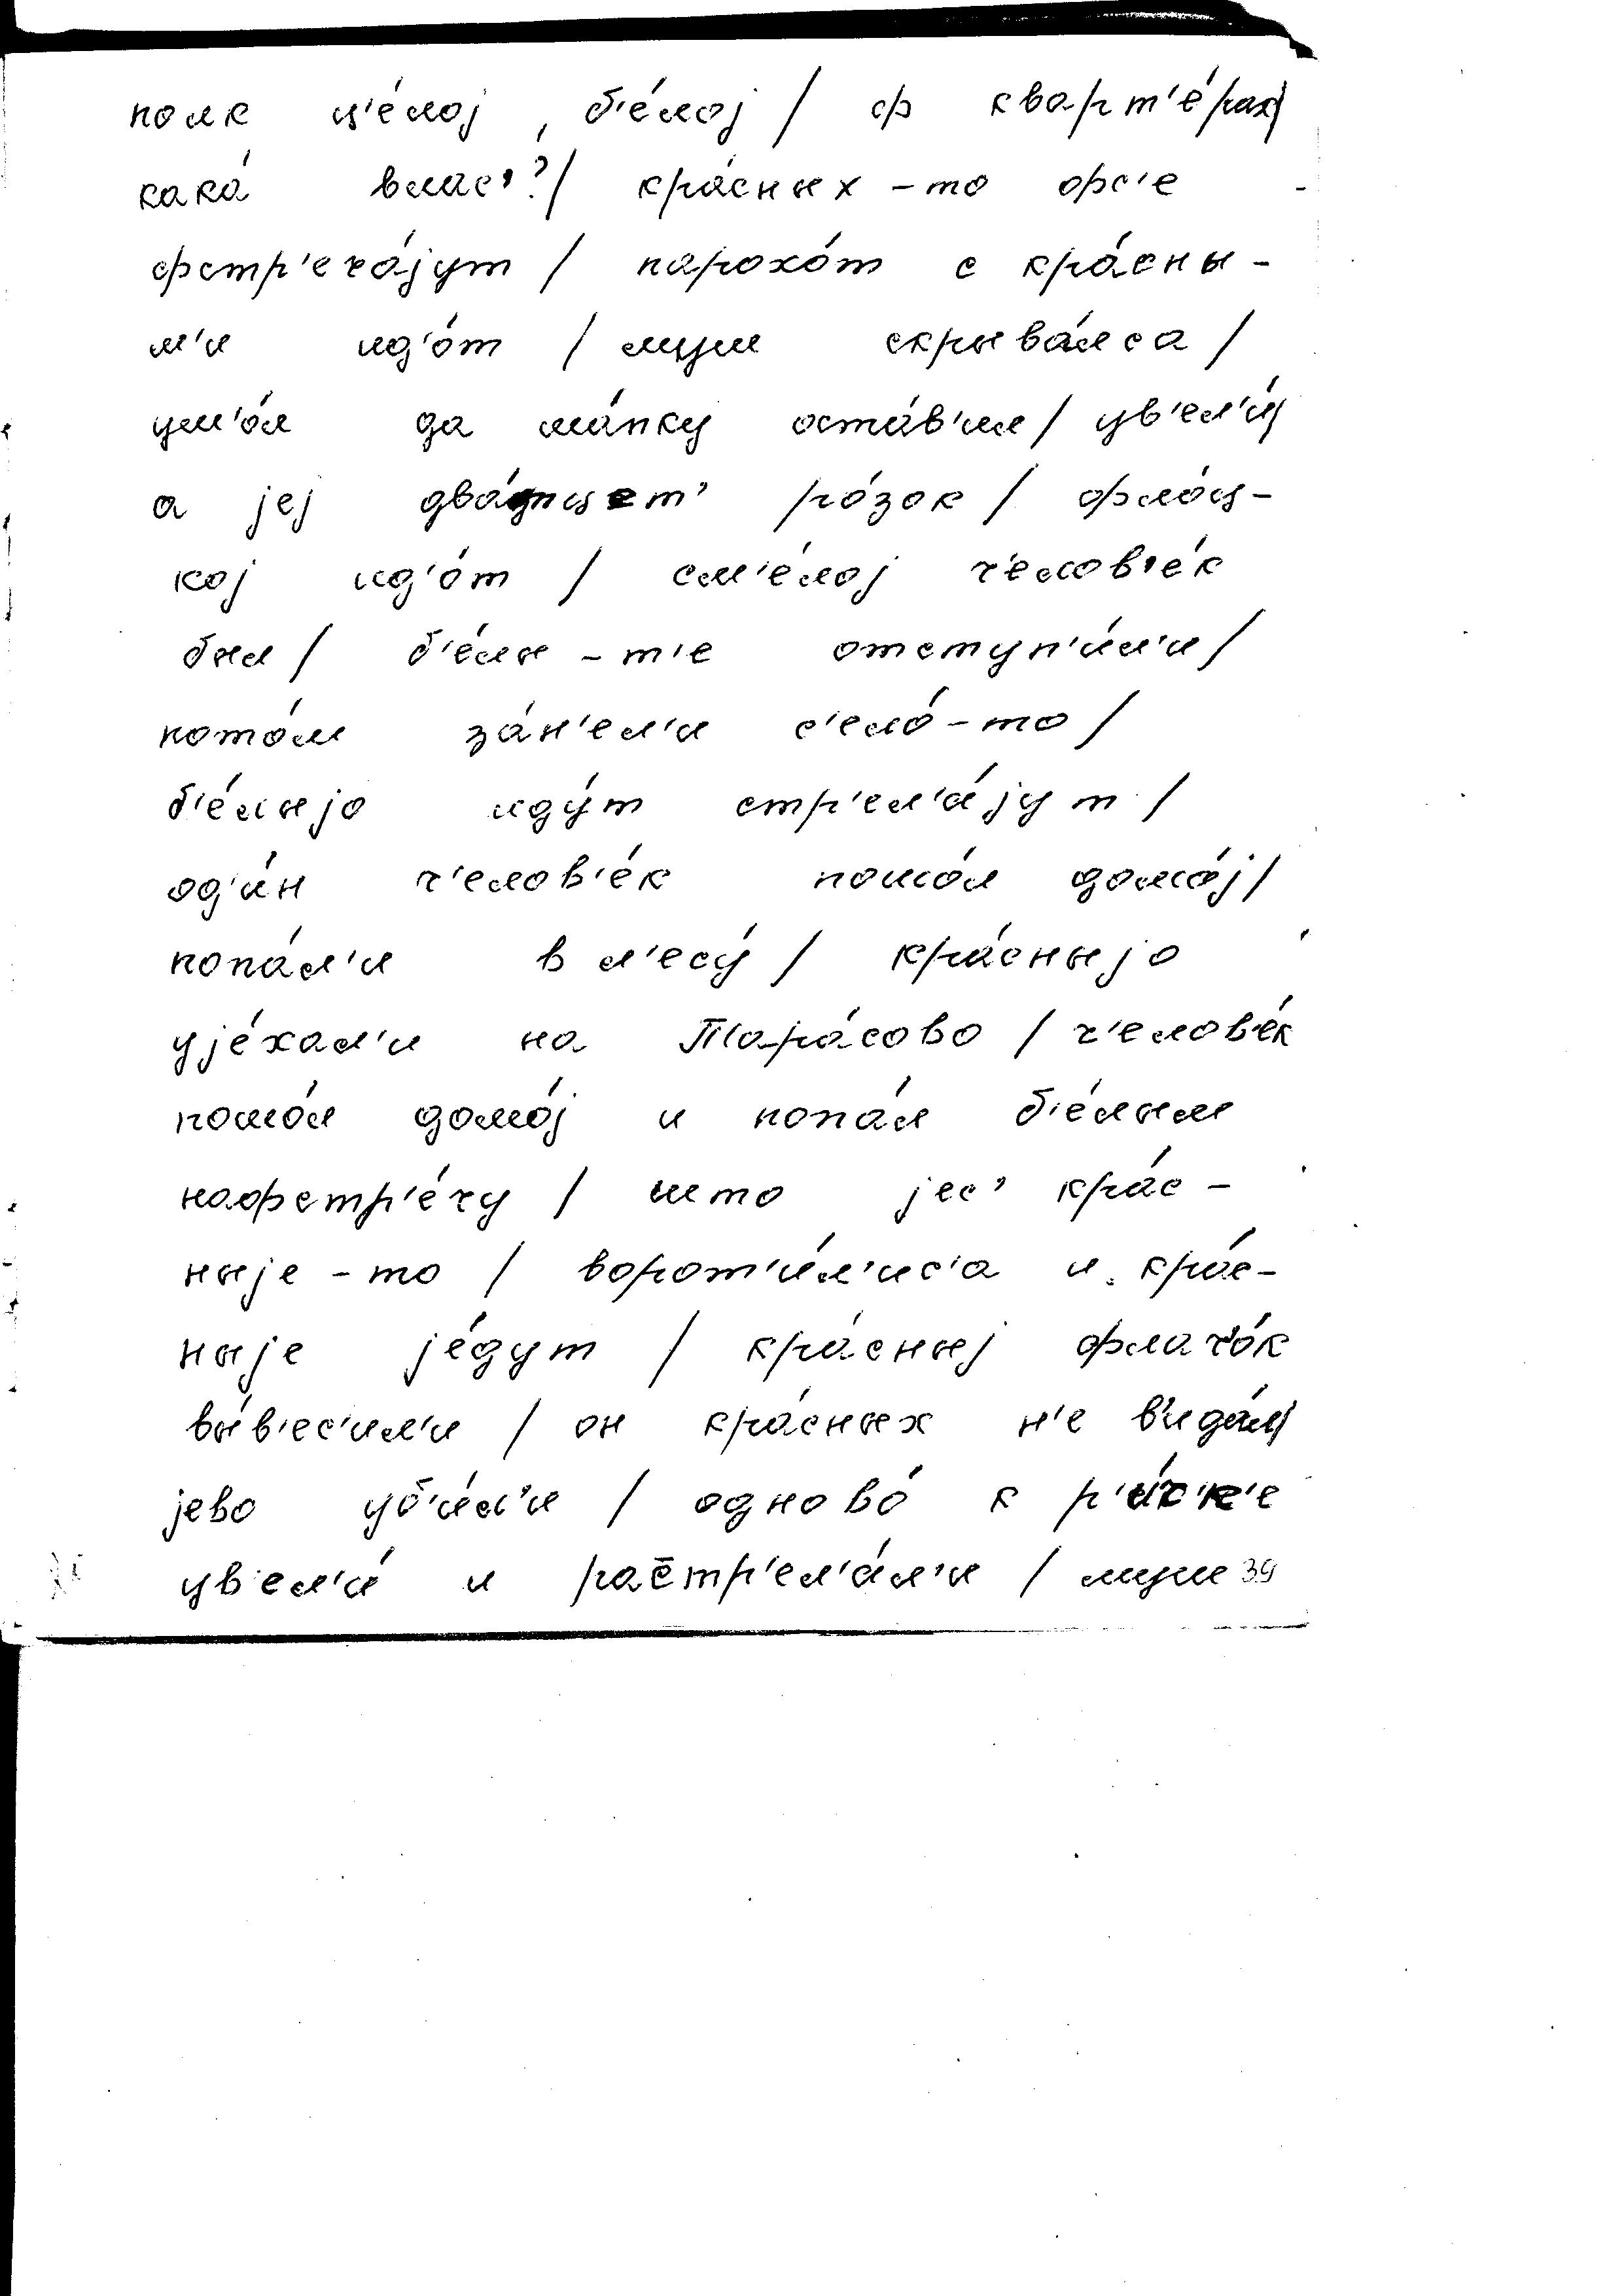 полк ц'éлоj, б'éлоj / ф кварт'éрах/
какá влас'? / крáсных-то фс'е
фстр'ечájут / парохóт с крáсны-
м'и ид'óт / муш скрывáлса /
уш'óл да шáпку остáв'ил / ув'ел'и́/
а jеj двáццет' рóзок / флóц-
коj ид'óт / см'éлоj ч'елов'éк
был / б'éлы-т'е отступ'и́л'и /
потóм зáн'ел'и с'елó-то /
б'éлыjо иду́т стр'ел'ájут /
од'и́н ч'елов'éк пошóл домój /
попáл'и в л'есу́ / крáсныjо
уjéхал'и на Тарáсово / ч'елов'éк
пошóл домój и попáл б'éлым
нафстр'éчу / што jес' крáс-
ныjе-то / ворот'и́л'ис'а и крáс-
ныjе jéдут / крáсныj флач'óк
вы́в'ес'ил'и / он крáсных н'е в'идáл/
jево уб'и́л'и / одновó к р'и́ч'к'е
ув'ел'и́ и рас̄тр'ел'áл'и / муш 39